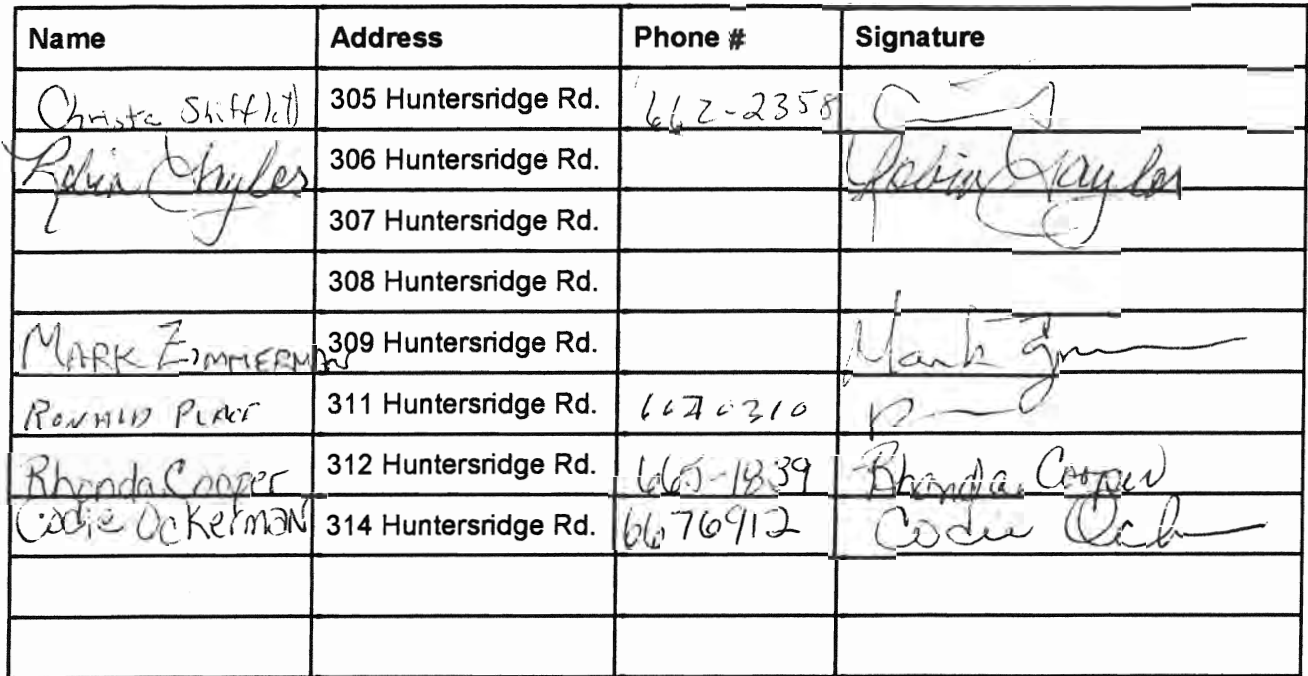 Name Address Phone # Signature
Christa Shifflett 305 Huntersridge Rd. 662-2358
Robin Gayles 306 Huntersridge Rd. Robin Gayles
307 Huntersridge Rd.
308 Huntersridge Rd.
MARK ZIMMERMAN 309 Huntersridge Rd. Mark
RONALD 311 Huntersridge Rd.
Rhonda Cooper 312 Huntersridge Rd. 665-1839 Rhonda Cooper
Codie Ockerman 314 Huntersridge Rd. 6676912 Codie